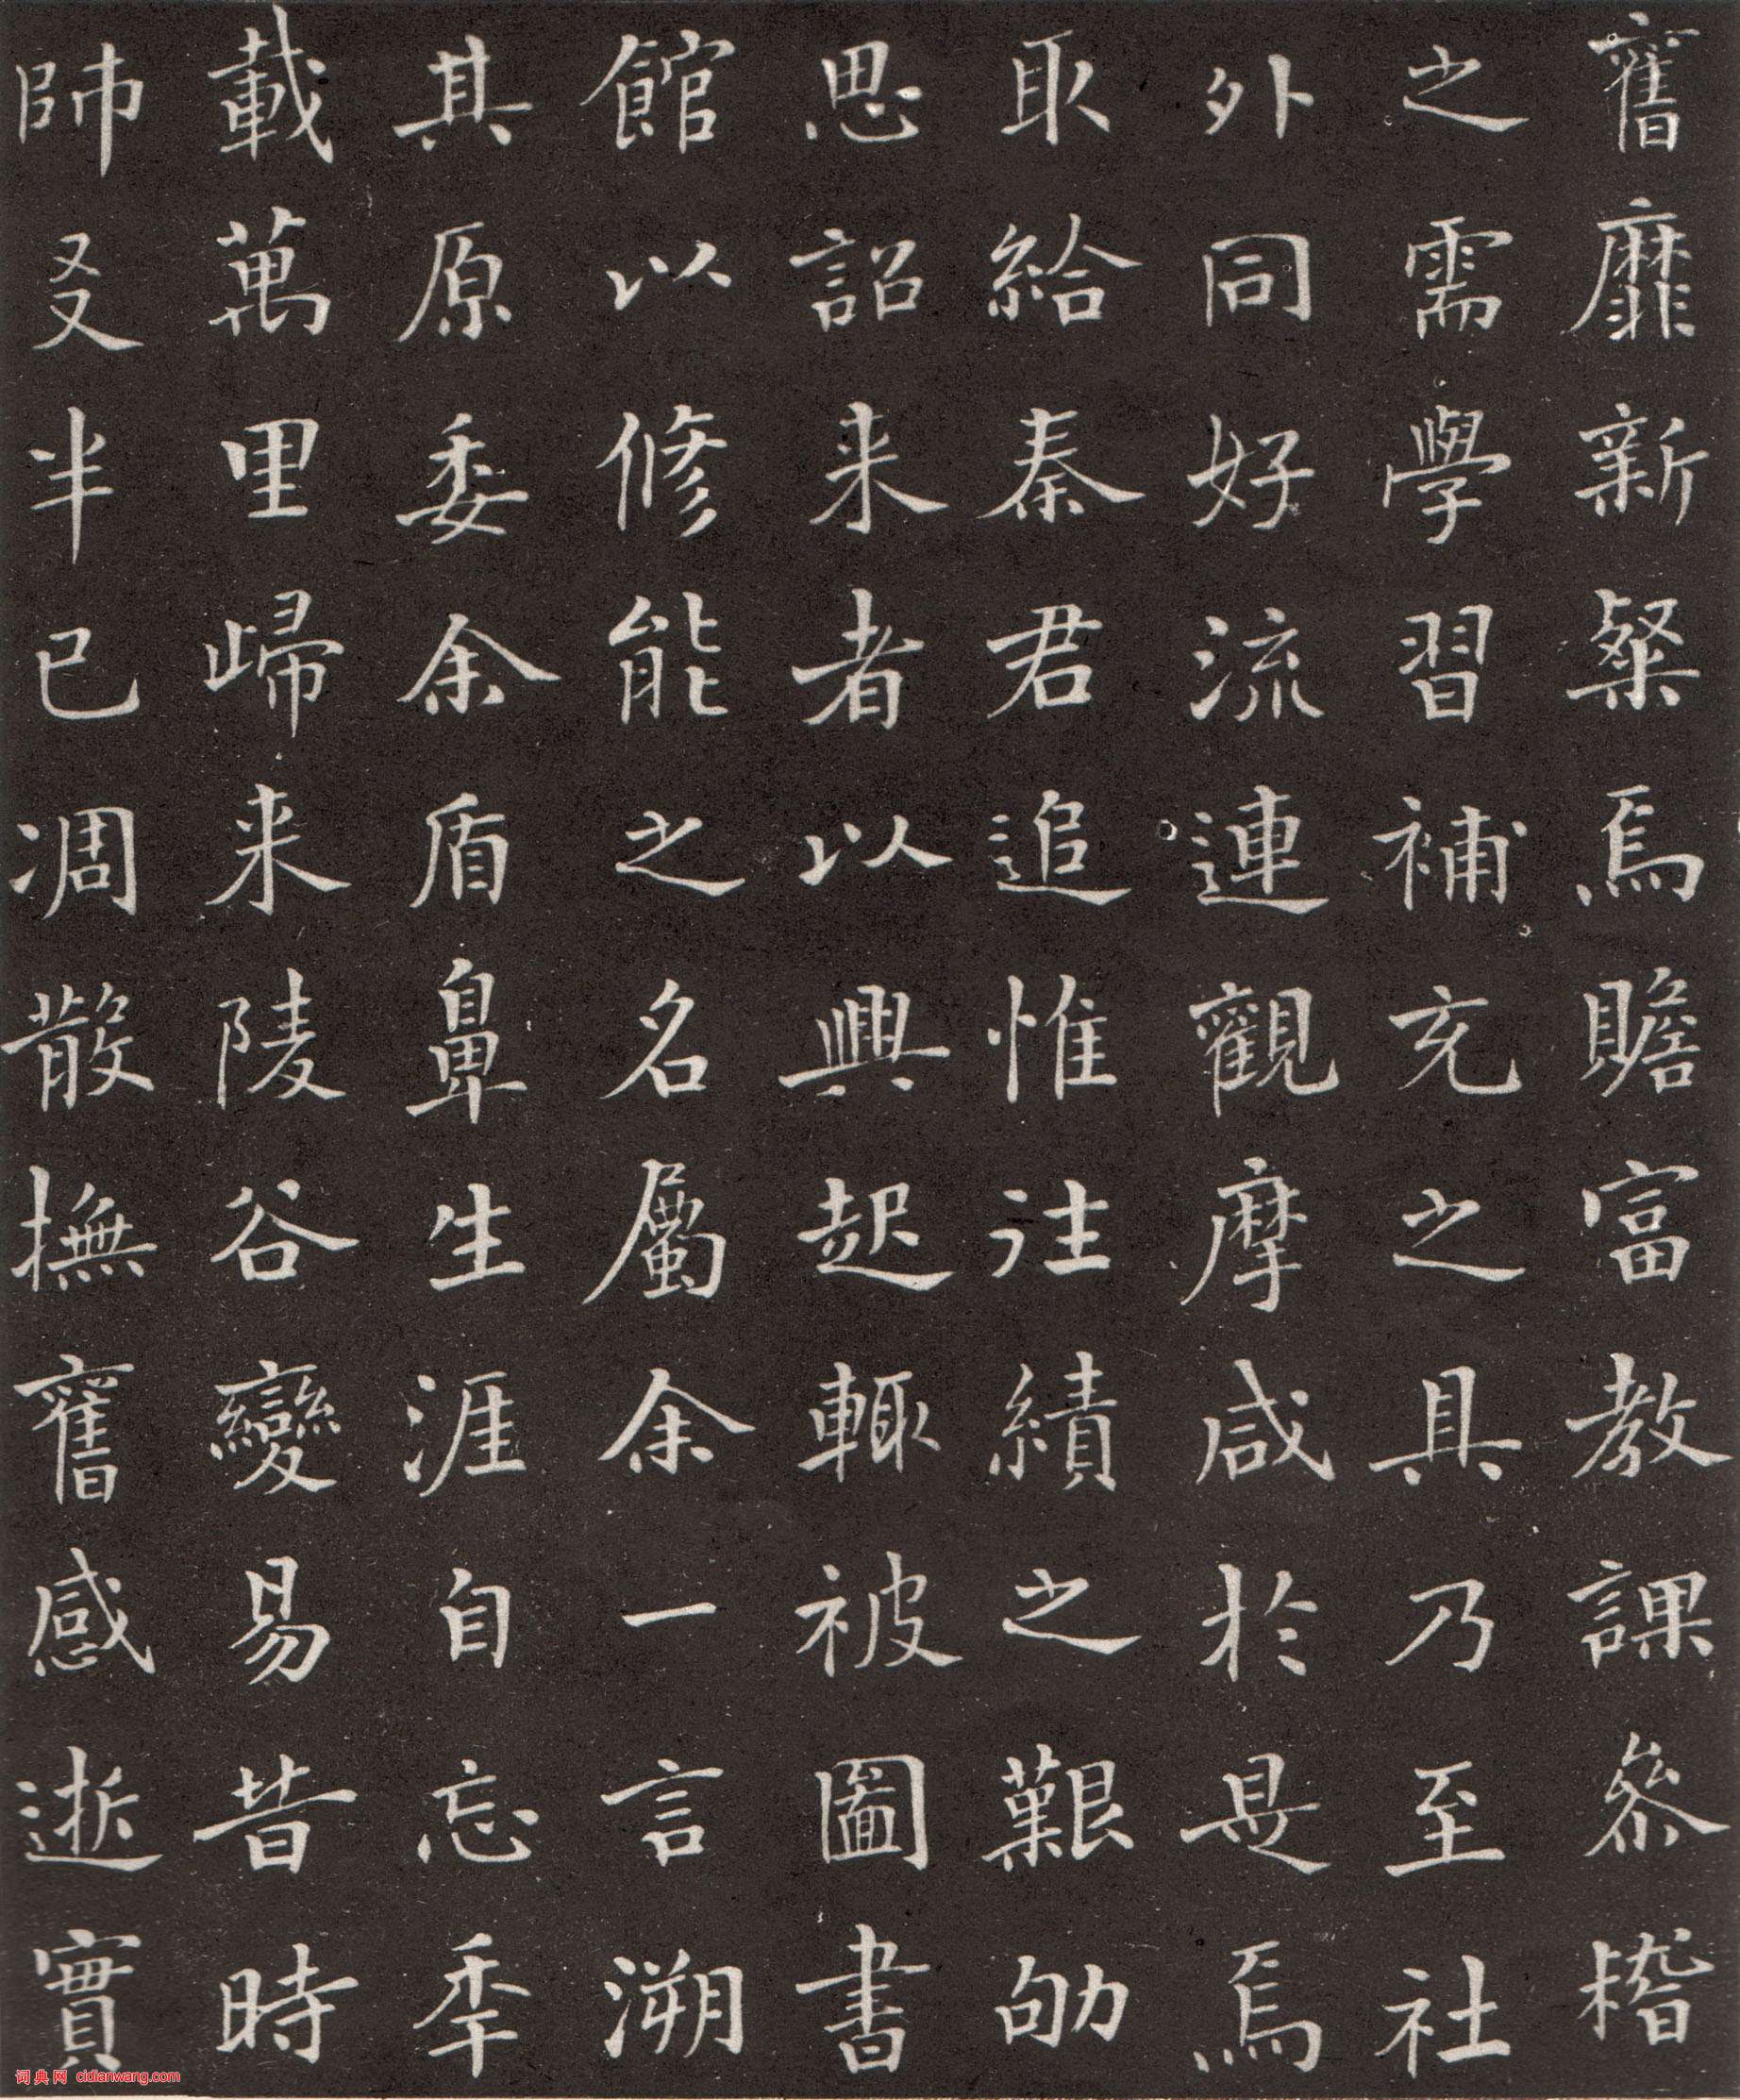 舊靡新粲焉贍富教課參稽
之需學習補充之具乃至社
外同好流連觀摩咸於是焉
取給秦君追惟往績之艱劬
思詔来者以興起輒被圖書
館以修能之名屬余一言溯
其原委余盾鼻生涯自忘季
載萬里歸来陵谷變易昔時
師友半已凋散撫舊感逝實
词典网 cidianwang.com